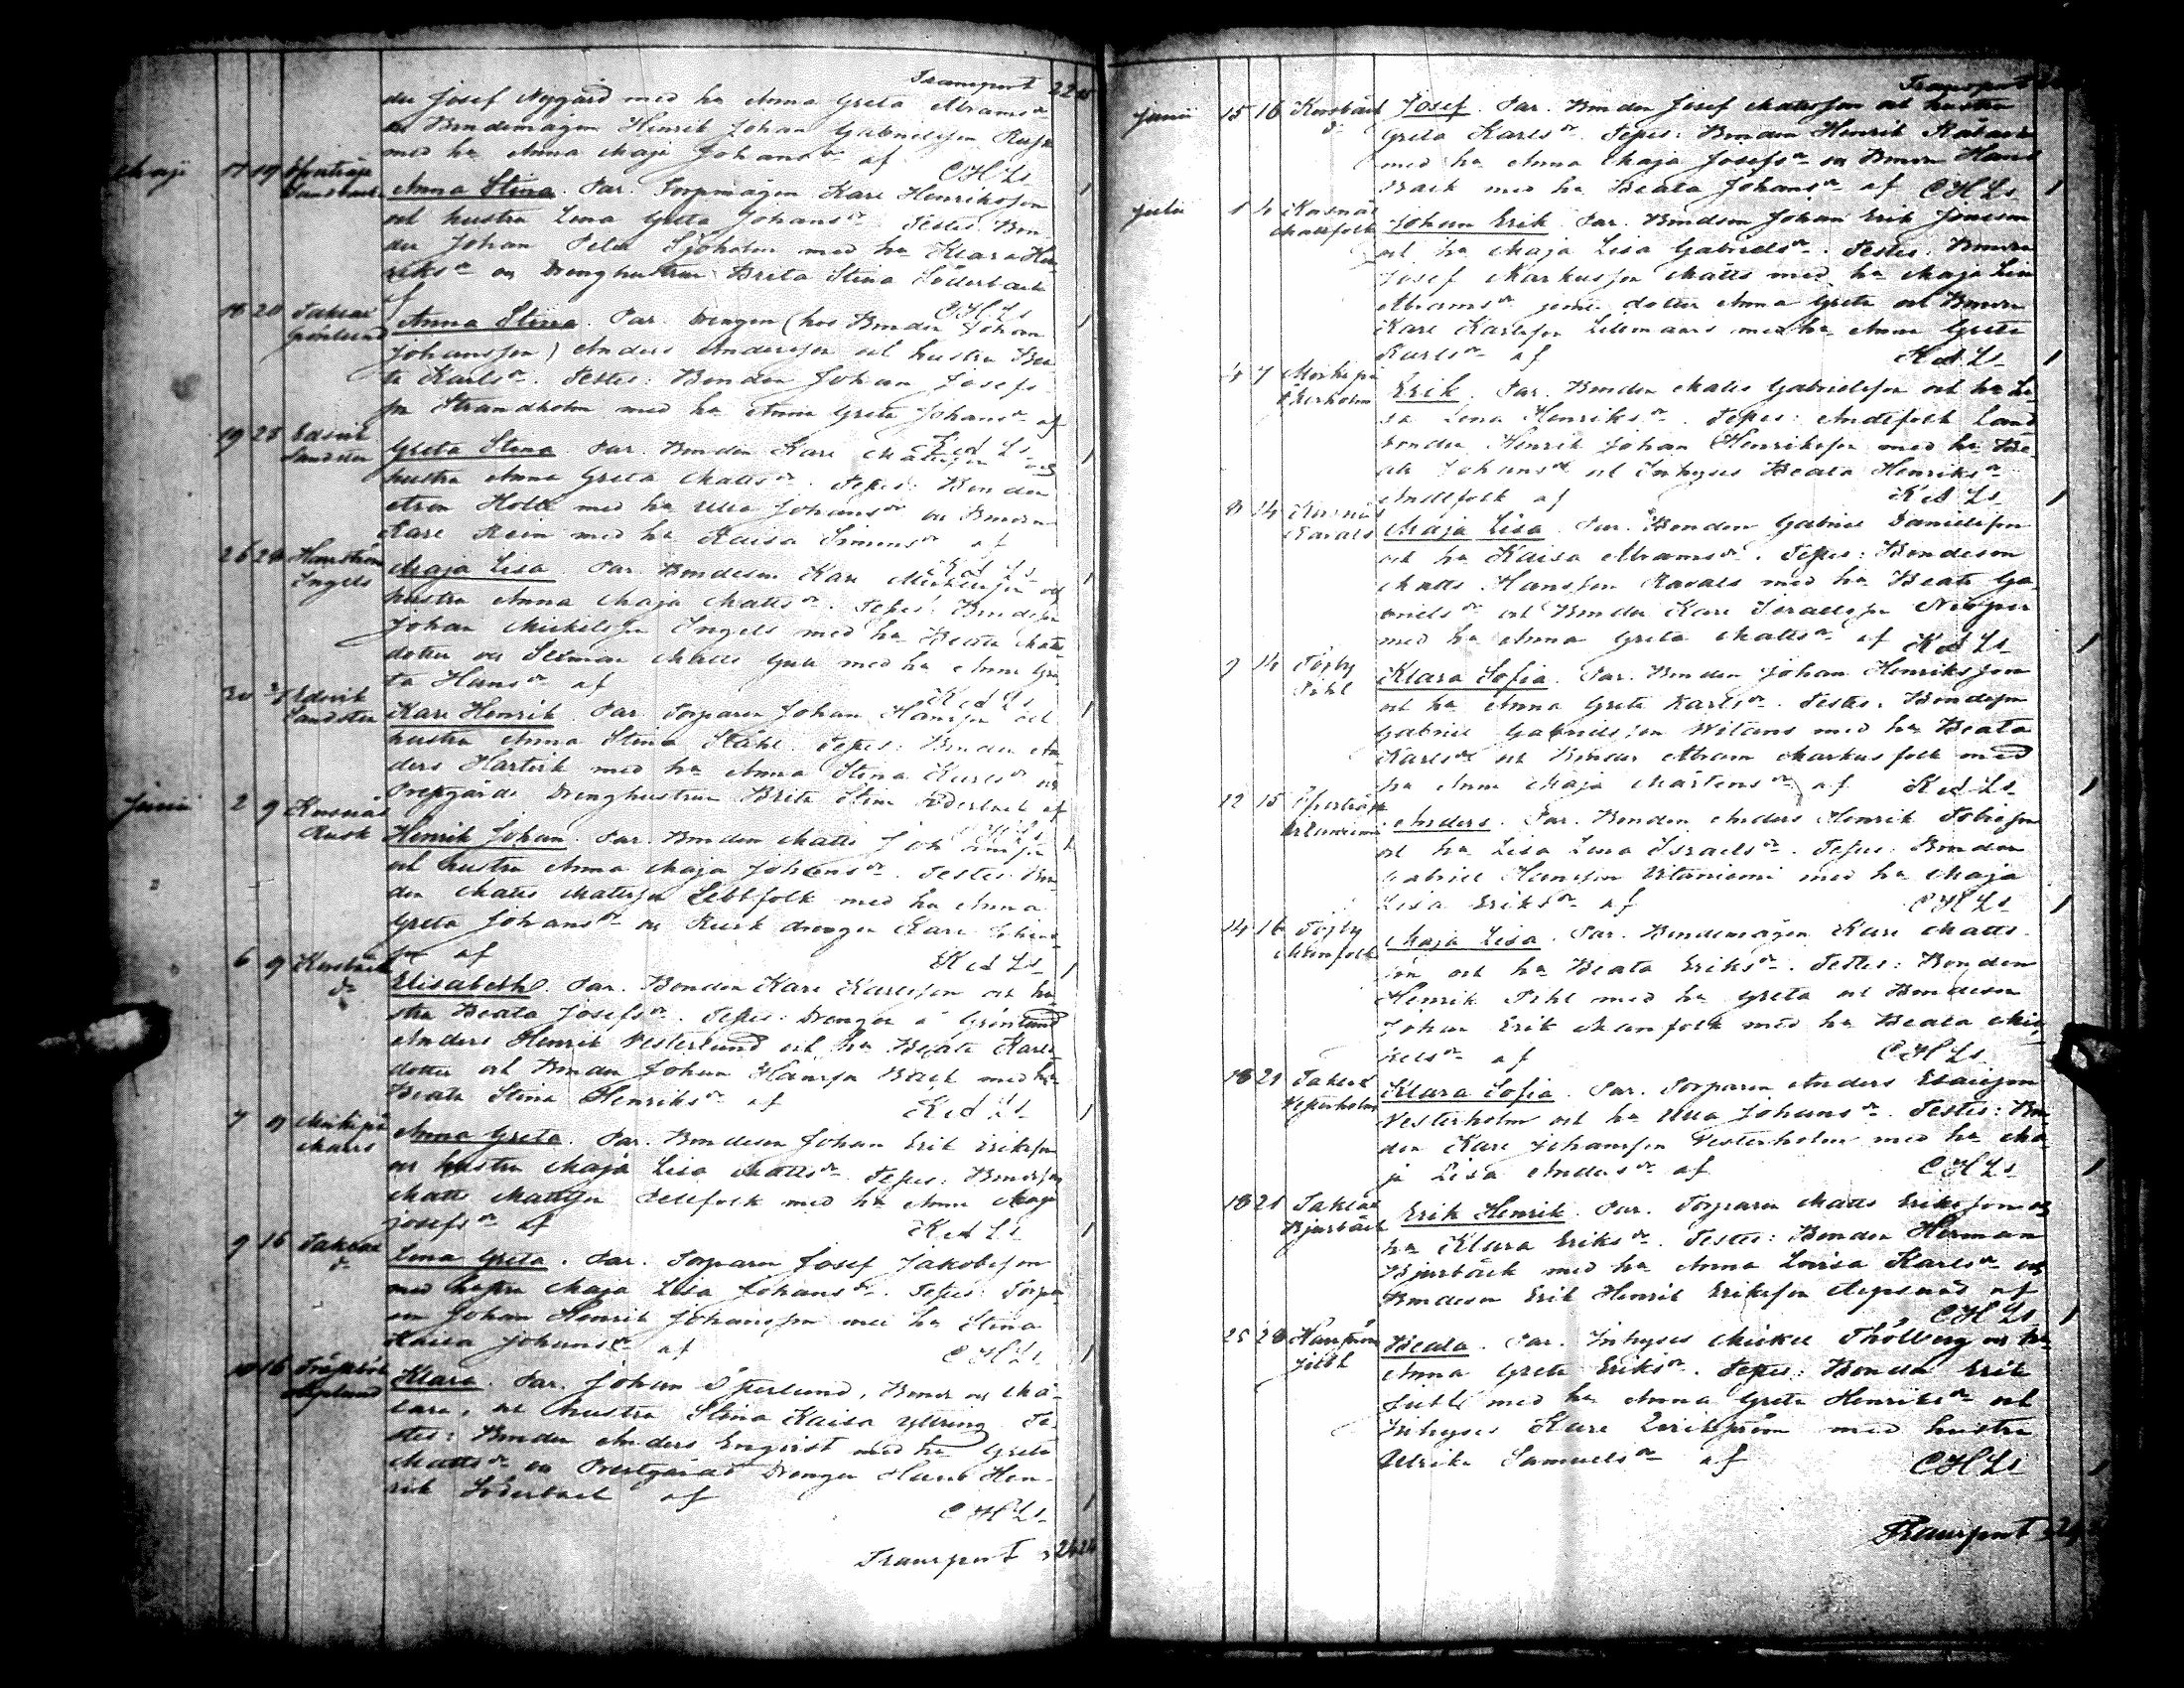 Transport 22 15
der Josef Nygård med ha Anna Greta Abramsdr
o Bondemågen Henrik Johan Gabrielsson Rusk
med ha Anna Maja Johansdr af CHLs
Maji 17 19 Sandback Anna Stina. Par. Torpmågen Karl Henriksson 1
och hustru Lena Greta Johansdr Testes: Bon-
den Johan Peter Sjöholm med ha Klara Hen-
riksdr och Drenghustrun Brita Stina Söderback
af CHLs
18 20 Grönlund Anna Stina. Par. Drengen (hos Bonden Johan 1
Johansson) Anders Andersson och hustru Bea-
ta Karlsdr. Testes: Bonden Johan Josefs-
son Strandholm med ha Anna Greta Johansdr af
KALs
19 25 Edsvik Sandsten Greta Stina. Par. Bonden Karl Mattsson och 1
hustru Anna Greta Mattsdr. Testes: Bonden
Holm med ha Ulla Johansdr och Bonden
Karl Rein med ha Kaisa Simonsdr af
KALs
26 28 Harrström Ingels Maja Lisa. Par. Bondeson Karl Mickelsson och 1
hustru Anna Maja Mattsdr. Testes: Bondeson
Johan Mickelsson Ingels med ha Beata Matts
dotter och Matts med ha Anna Gre-
ta Hansdr af KALs
30 Edsvik Sandsten Karl Henrik. Par. Torparen Johan Hansson och 1
hustru Anna Stina Ståhl. Testes: Bonden An-
ders Hartvik med ha Anna Stina Karlsdr och
Prestgårds Drenghustrun Brita Stina Söderback af
Junii 2 9 Korsnäs Rusk Henrik Johan. Par. Bonden Matts Johansson 1
och hustru Anna Maja Johansdr. Testes: Bon-
den Matts Mattsson Lebbfolk med ha Anna
Greta Johansdr och Rusk drengen Karl Johans-
son af KALs
6 9 Korsbäck Elisabeth. Par. Bonden Karl Karlsson och hu- 1
stru Beata Josefsdr. Testes: Drengen å Grönlund
Anders Henrik Vesterlund och ha Beata Karls-
dotter och Bonden Johan Hansson Back med ha
Beata Stina Henriksdr af KALs
7 9 Anna Greta. Par. Bondeson Johan Erik Eriksson 1
och hustru Maja Lisa Mattsdr. Testes: Bondeson
Matts Mattsson med ha Anna Maja
Josefsdr af KALs
9 16 Lena Greta. Par. Torparen Josef Jakobsson 1
med hustru Maja Lisa Johansdr. Testes: Torpa-
ren Johan Henrik Johansson med ha Stina
Kaisa Johansdr af CHLs
10 16 Klara. Par. Johan Österlund, Bonde och Må- 1
lare, och hustru Stina Kaisa Yttring. Te-
stes: Bonden Anders Engqvist med ha Greta
Mattsdr och Prestgårds Drengen Hans Hen-
rik Söderback af
CHLs 1
Transport 26 24
Transport
Junii 15 16 Korsbäck Josef. Par. Bonden Josef Mattsson och hustru
Greta Karlsdr. Testes: Bonden Henrik
med ha Anna Maja Josefsdr och Bonden Hans
Back med ha Beata Johansdr af CHLs 1
Julii 1 4 Korsnäs Mattsfolk Johan Erik. Par. Bondeson Johan Erik Jonsson
och ha Maja Lisa Gabrielsdr. Testes: Bonden
Josef Markusson Matts med ha Maja Lisa
Abramsdr jemte dotter Anna Greta och Bonden
Karl Karlsson med ha Anna Greta
Karlsdr af KALs 1
4 7 Åkerholm Erik. Par. Bonden Matts Gabrielsson och ha Li-
sa Lena Henriksdr. Testes: Andtfolk Land
bonden Henrik Johan Henriksson med ha Be-
ata Johansdr och Inhyses Beata Henriksdr
Andtfolk af KALs 1
8 14 Korsnäs Ravals Maja Lisa. Par. Bonden Gabriel Danielsson
och ha Kaisa Abramsdr. Testes: Bondeson
Matts Hansson Ravals med ha Beata Ga-
brielsdr och Bonden Karl Israelsson
med ha Anna Greta Mattsdr af KALs 1
9 14 Töjby Pihl Klara Sofia. Par. Bonden Johan Henriksson
och ha Anna Greta Karlsdr. Testes: Bondeson
Gabriel Gabrielsson Witans med ha Beata
Karlsdr och Bonden Abram Markusfolk med
ha Anna Maja Mårtensdr af KALs 1
12 15 Anders. Par. Bonden Anders Henrik Tobiasson
och ha Lisa Lena Israelsdr. Testes: Bonden
Gabriel Hansson Utaniemi med ha Maja
Lisa Eriksdr af CHLs 1
14 16 Töjby Manfolk Maja Lisa. Par. Bondemågen Karl Matts-
son och ha Beata Eriksdr. Testes: Bonden
Henrik Pihl med ha Greta och Bondeson
Johan Erik Manfolk med ha Beata Mic-
kelsdr af CHLs
18 21 Vesterholm Klara Sofia. Par. Torparen Anders Esaiasson
Vesterholm och ha Ulla Johansdr. Testes: Bon-
den Karl Johansson Vesterholm med ha Ma-
ja Lisa Andersdr af CHLs 1
18 21 Bjurbäck Erik Henrik. Par. Torparen Matts Eriksson och
ha Klara Eriksdr. Testes: Bonden Herman
Bjurbäck med ha Anna Lovisa Karlsdr och
Bondeson Erik Henrik Eriksson af
CHLs 1
25 28 Harrström Juthl Beata. Par. Inhyses Mickel Thölberg och ha
Anna Greta Eriksdr. Testes: Bonden Erik
Juthl med ha Anna Greta Henriksdr och
Inhyses Karl med hustru
Ulrika Samuelsdr af CHLs 1
Transport